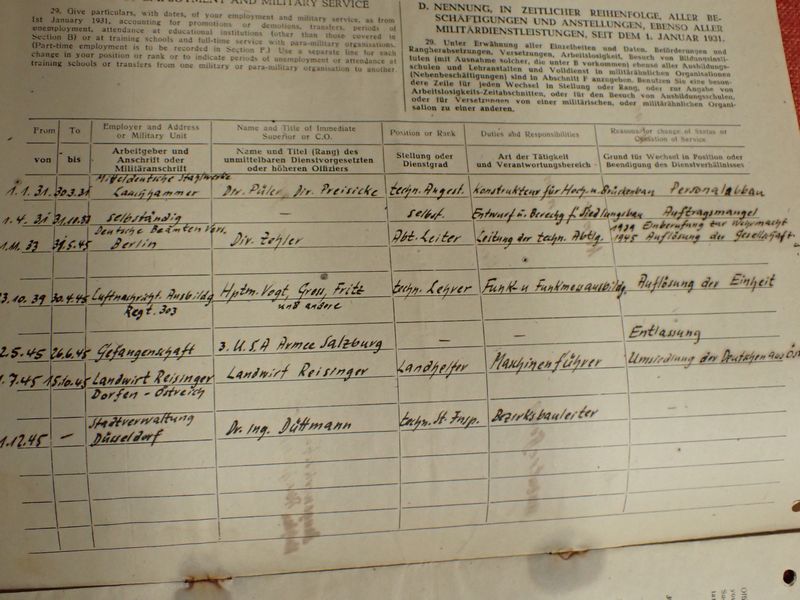 EMPLOYMENT AND MILITARY SERVICE
29. Give particulars, with dates, of your employment and military service, as from
1st January 1931, accounting for promotions or demotions, transfers, periods of
unemployment, attendance at educational institutions (other than those covered in
Section B) or at training schools and full-time service with para-military organisations.
(Part-time employment is to be recorded in Section F.) Use a separate line for each
change in your position or rank or to indicate periods of unemployment or attendance at
training schools or transfers from one military or para-military organisation to another.
D. NENNUNG, IN ZEITLICHER REIHENFOLGE, ALLER BE-
SCHÄFTIGUNGEN UND ANSTELLUNGEN, EBENSO ALLER
MILITÄRDIENSTLEISTUNGEN, SEIT DEM 1. JANUAR 1931.
29. Unter Erwähnung aller Einzelheiten und Daten, Beförderungen und
Rangherabsetzungen, Versetzungen, Arbeitslosigkeit, Besuch von Bildungsinsti-
tuten (mit Ausnahme solcher, die unter B vorkommen) ebenso aller Ausbildungs-
schulen und Lehranstalten und Volldienst in militärähnlichen Organisationen
(Nebenbeschäftigungen) sind in Abschnitt F anzugeben. Benutzen Sie eine beson-
dere Zeile für jeden Wechsel in Stellung oder Rang, oder zur Angabe von
Arbeitslosigkeits-Zeitabschnitten, oder für den Besuch von Ausbildungsschulen,
oder für Versetzungen von einer militärischen, oder militärähnlichen Organi-
sation zu einer anderen.
From To Employer and Address Name and Title of Immediate Position or Rank Duties and Responsibilities Reasons for change of Status or
or Military Unit Superior or C.O. Cessation of Service
von bis Arbeitgeber und Name und Titel (Rang) des Stellung oder Art der Tätigkeit Grund für Wechsel in Position oder
Anschrift oder unmittelbaren Dienstvorgesetzten Dienstgrad und Verantwortungsbereich Beendigung des Dienstverhältnisses
Militäranschrift oder höheren Offiziers
Mitteldeutsche Stahlwerke
1.1.31 30.3.31 Lauchhammer Dir. Püler, Dir. Preisicke techn. Angest. Konstrukteur für Hoch. u. Brückenbau Personalabbau
1.4.31 31.10.33 selbständig — selbst. Entwurf u. Berechg f. Siedlungsbau Auftragsmangel
Deutsche Beamten Vers. 1939 Einberufung zur Wehrmacht
1.11.33 31.5.45 Berlin Dir. Zohler Abt. Leiter Leitung der techn. Abtlg. 1945 Auflösung der Gesellschaft
3.10.39 30.4.45 Luftnachricht. Ausbildg Hptm. Vogt, Gross, Fritz techn. Lehrer Funk- u Funkmessausbildg. Auflösung der Einheit
Regt. 303 und andere
Entlassung
2.5.45 26.6.45 Gefangenschaft 3. U.S.A Armee Salzburg — —
1.7.45 15.10.45 Landwirt Reisinger Landwirt Reisinger Landhelfer Maschinenführer Umsiedlung der Deutschen aus Öst
Dorfen - Östreich
Stadtverwaltung
1.12.45 — Düsseldorf Dr. Ing. Düttmann techn. St. Insp. Bezirksbauleiter —